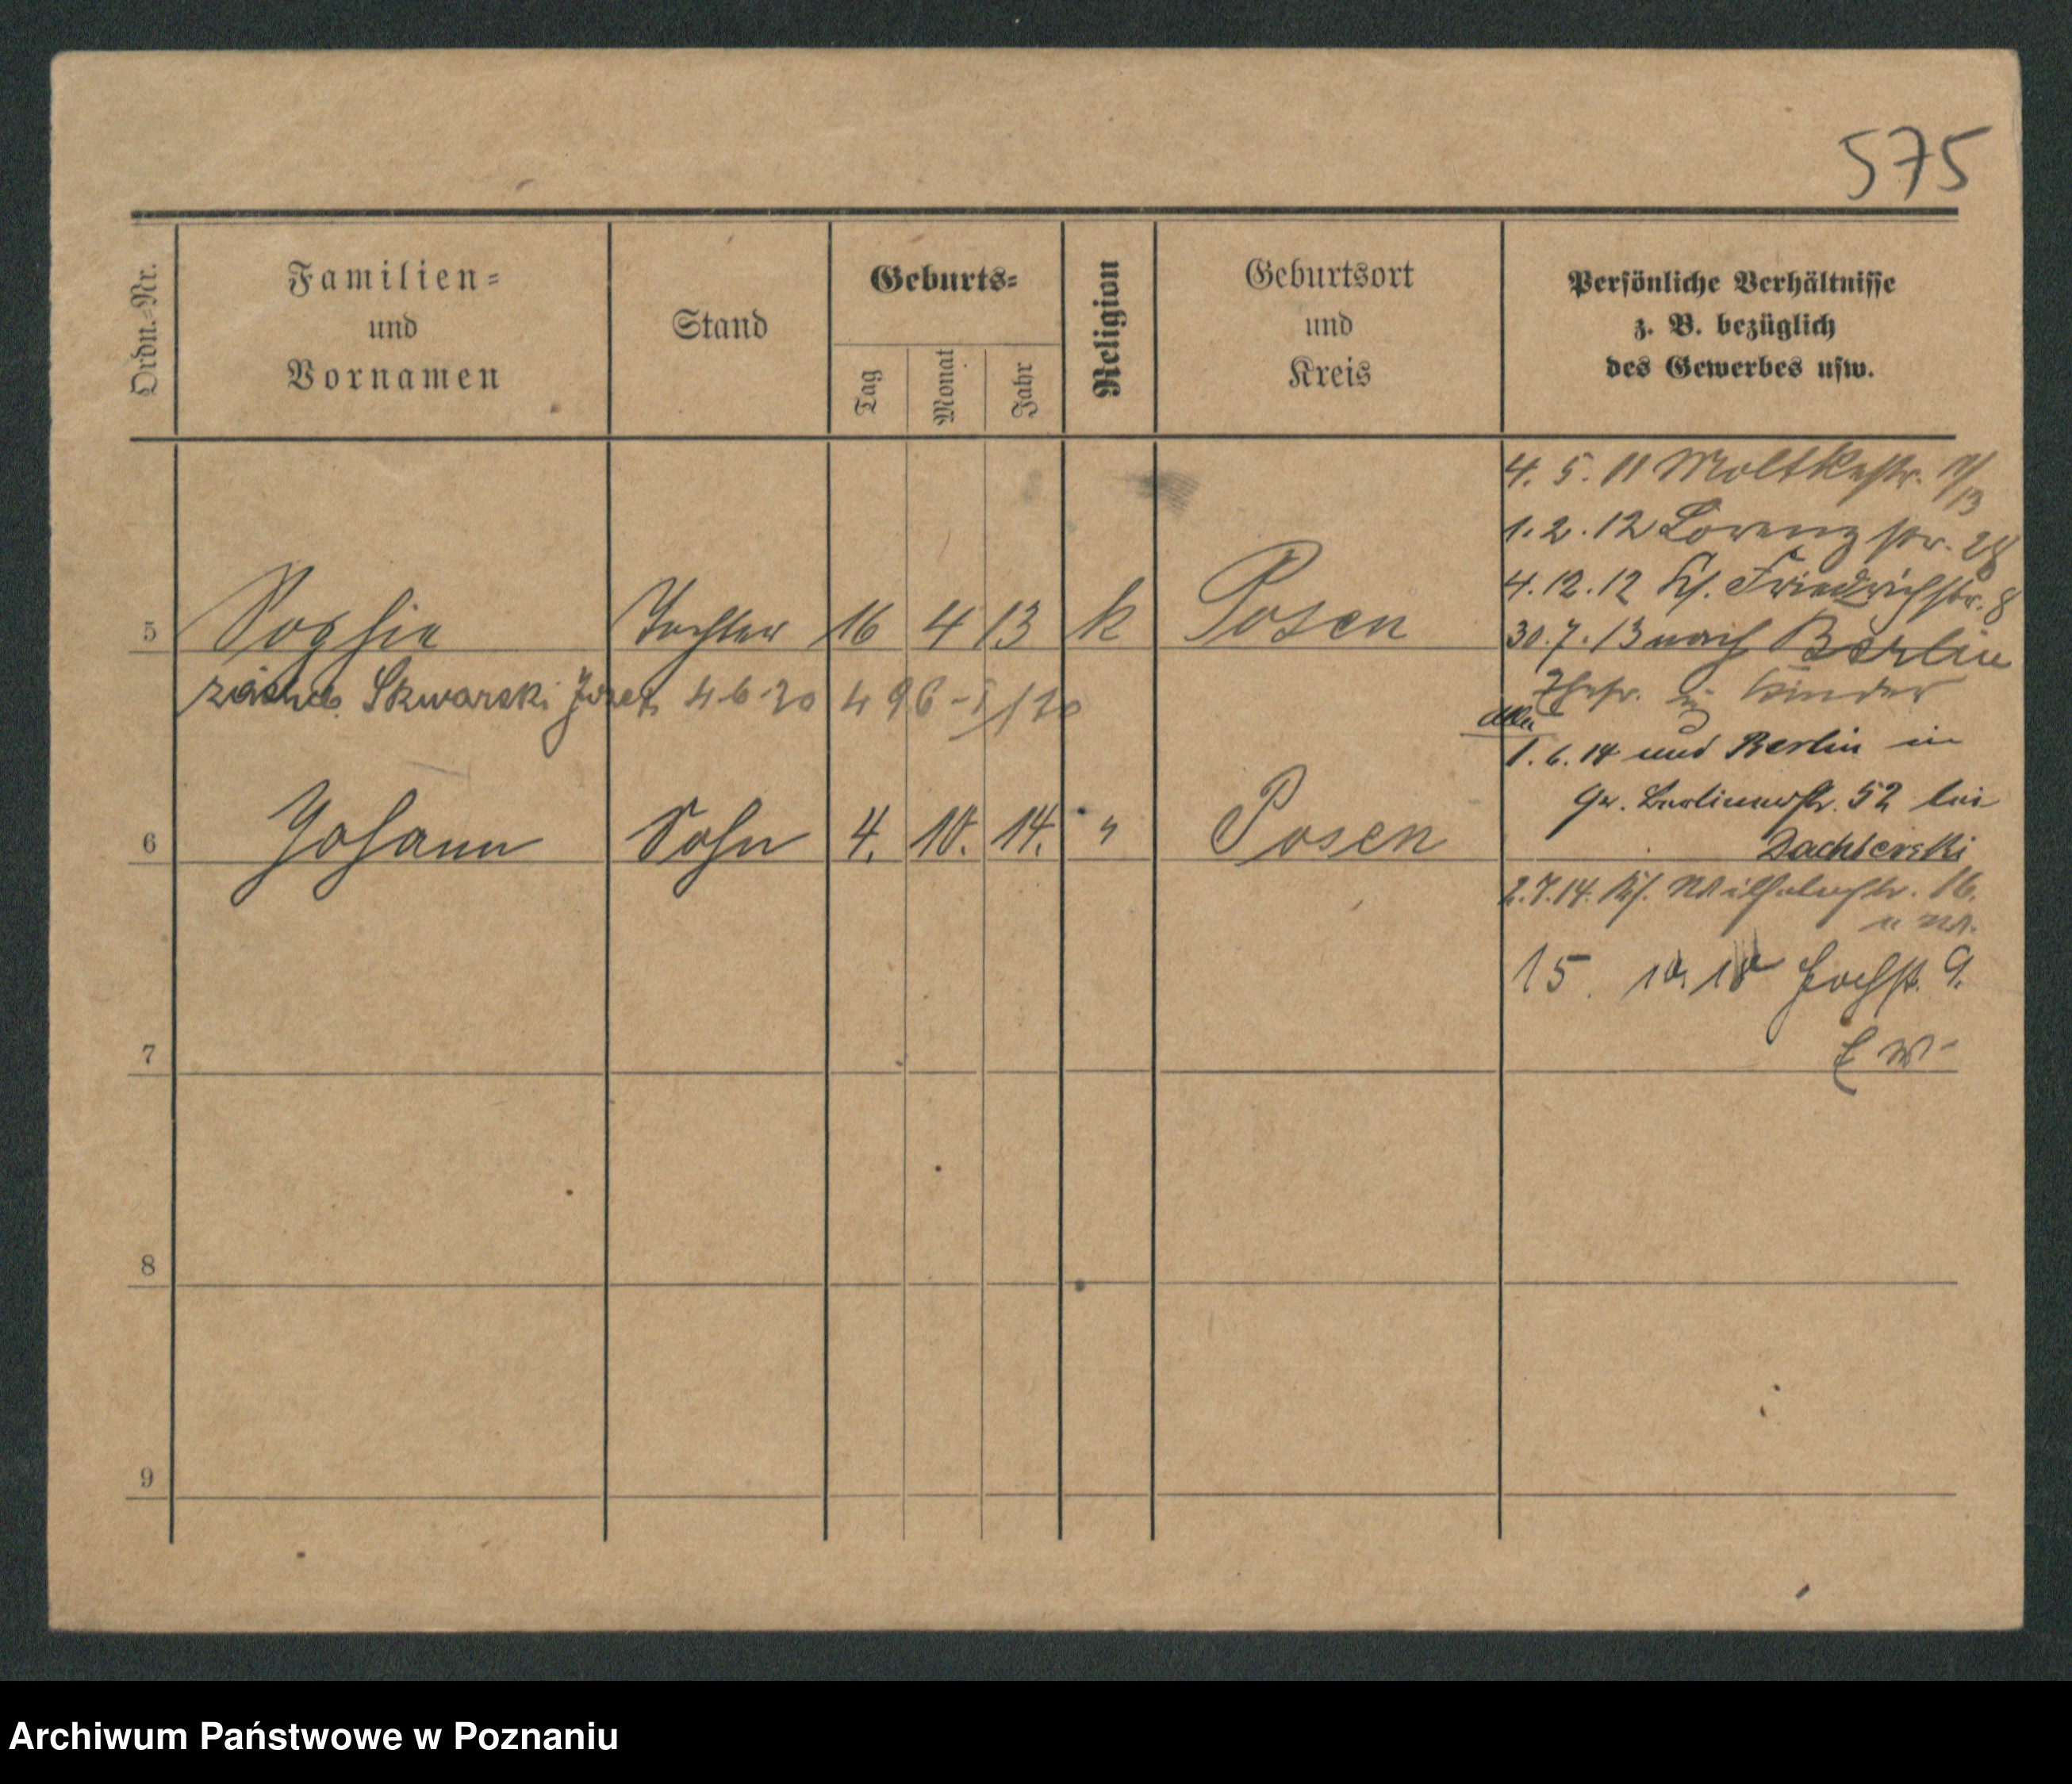 575
Ordn.-Nr.
Familien-
und
Vornamen
Stand
Geburts-
Tag
Monat
Jahr
Religion
Geburtsort
und
Kreis
Persönliche Verhältnisse
z. B. bezüglich
des Gewerbes usw.
4. 5. 11 Moltkestr. 11/13
1. 2. 12 Lorenzstr. 28
4. 12. 12 Kl. Friedrichstr. 8
5 Sophie Tochter 16 4 13 k Posen
30. 7. 13 nach Berlin
Skwarski Józef 4 6 20 4 96
Ehefr. Kinder
1. 6. 14 und Berlin in
Gr. Berlinerstr. 52 bei
6 Johann Sohn 4. 10. 14. " Posen
Dachterski
2. 7. 14. Kl. Wilhelmstr. 16.
15. 10 18 Hochstr. 9.
E W
7
8
9
Archiwum Państwowe w Poznaniu